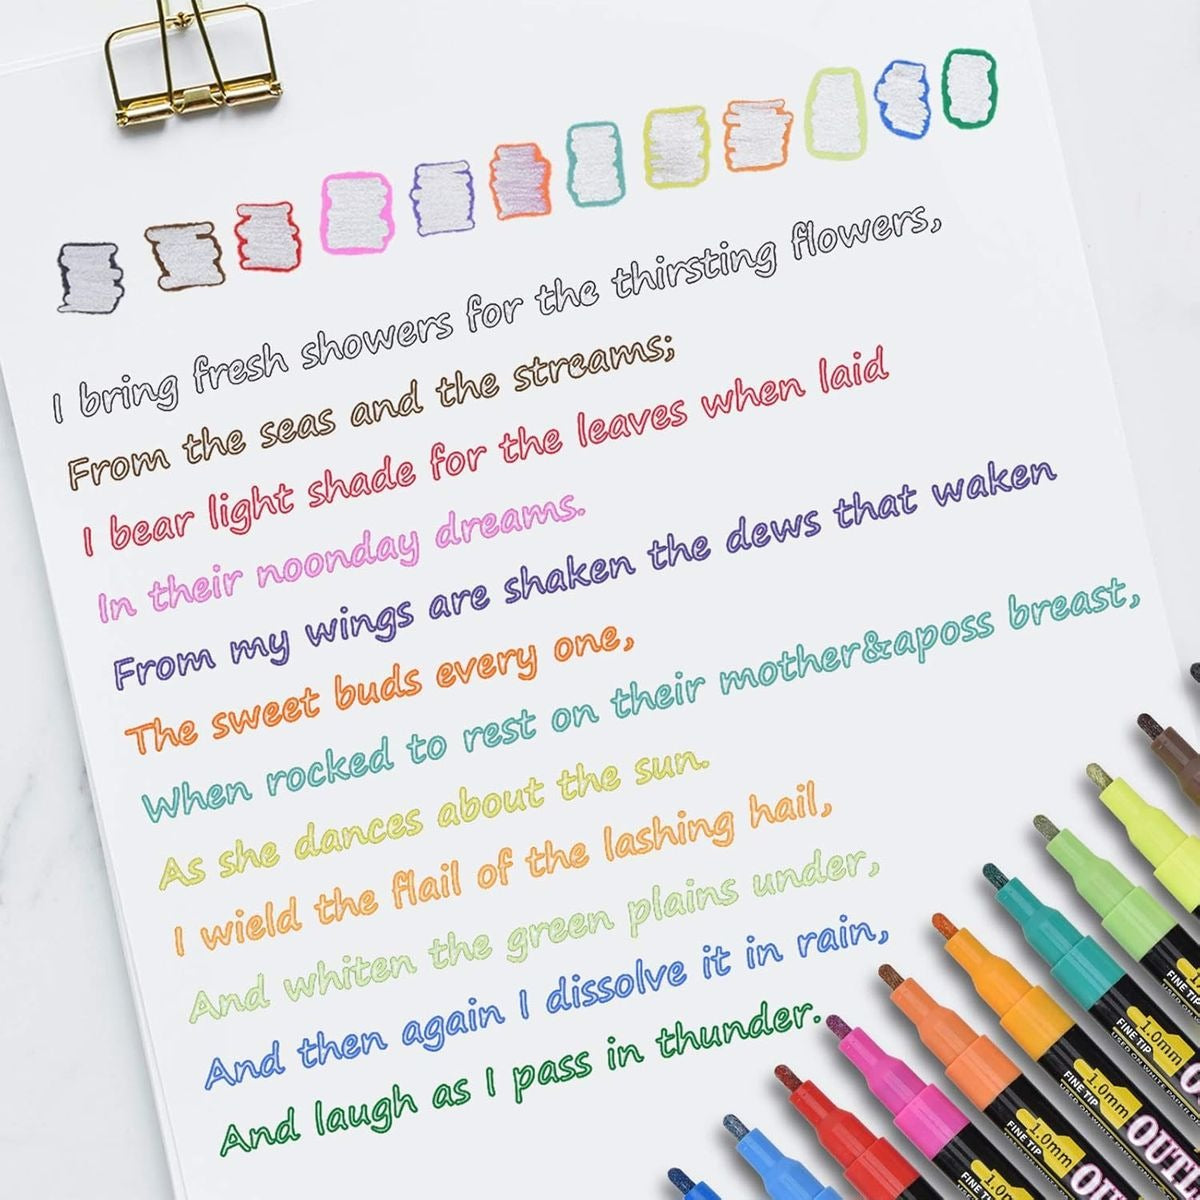 I bring fresh showers for the thirsting flowers,
From the seas and the streams;
I bear light shade for the leaves when laid
In their noonday dreams.
From my wings are shaken the dews that waken
The sweet buds every one,
When rocked to rest on their mother&aposs breast,
As she dances about the sun.
I wield the flail of the lashing hail,
And whiten the green plains under,
And then again I dissolve it in rain,
And laugh as I pass in thunder.
FINE TIP
FINE TIP 1.0mm
FINE TIP 1.0mm OUTL
FINE TIP 1.0mm